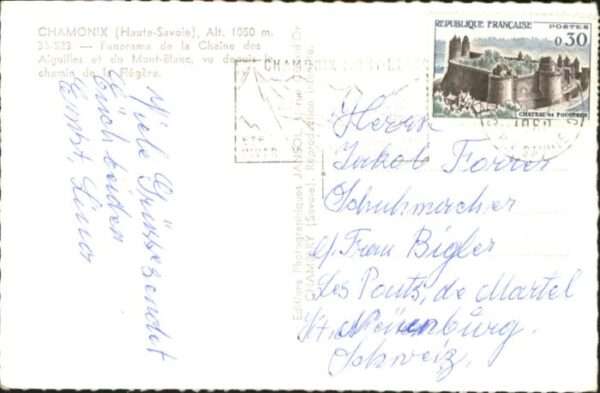 CHAMONIX (Haute-Savoie), Alt. 1050 m.
35-533 — Panorama de la Chaîne des
Aiguilles et du Mont-Blanc, vu depuis le
chemin de la Flégère.
Viele Grüsse sendet
Euch beiden
Ernst, Lina
Editions Photographiques JANSOL, rue
CHAMBÉRY (Savoie). Reproduction interdite.
CHAMONIX
REPUBLIQUE FRANÇAISE
POSTES
0,30
CHATEAU DE FOUGERES
Herrn
Jakob Forrer
Schuhmacher
b/ Frau Bigler
Les Ponts, de Martel
Kt. Neuenburg.
Schweiz.